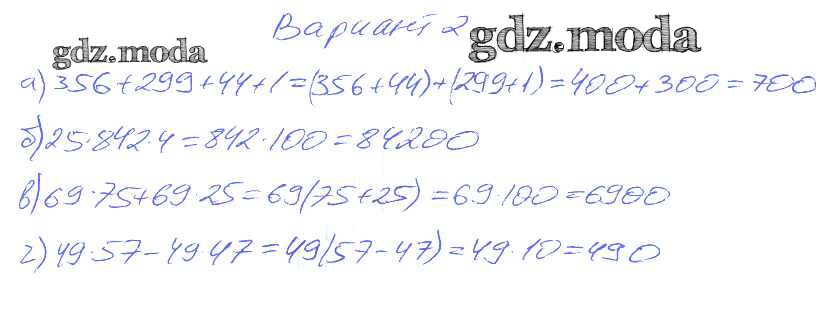 Вариант 2
gdz.moda gdz.moda
а) 356+299+44+1=(356+44)+(299+1)=400+300=700
б) 25·842·4=842·100=84200
в) 69·75+69·25=69(75+25)=69·100=6900
г) 49·57-49·47=49(57-47)=49·10=490